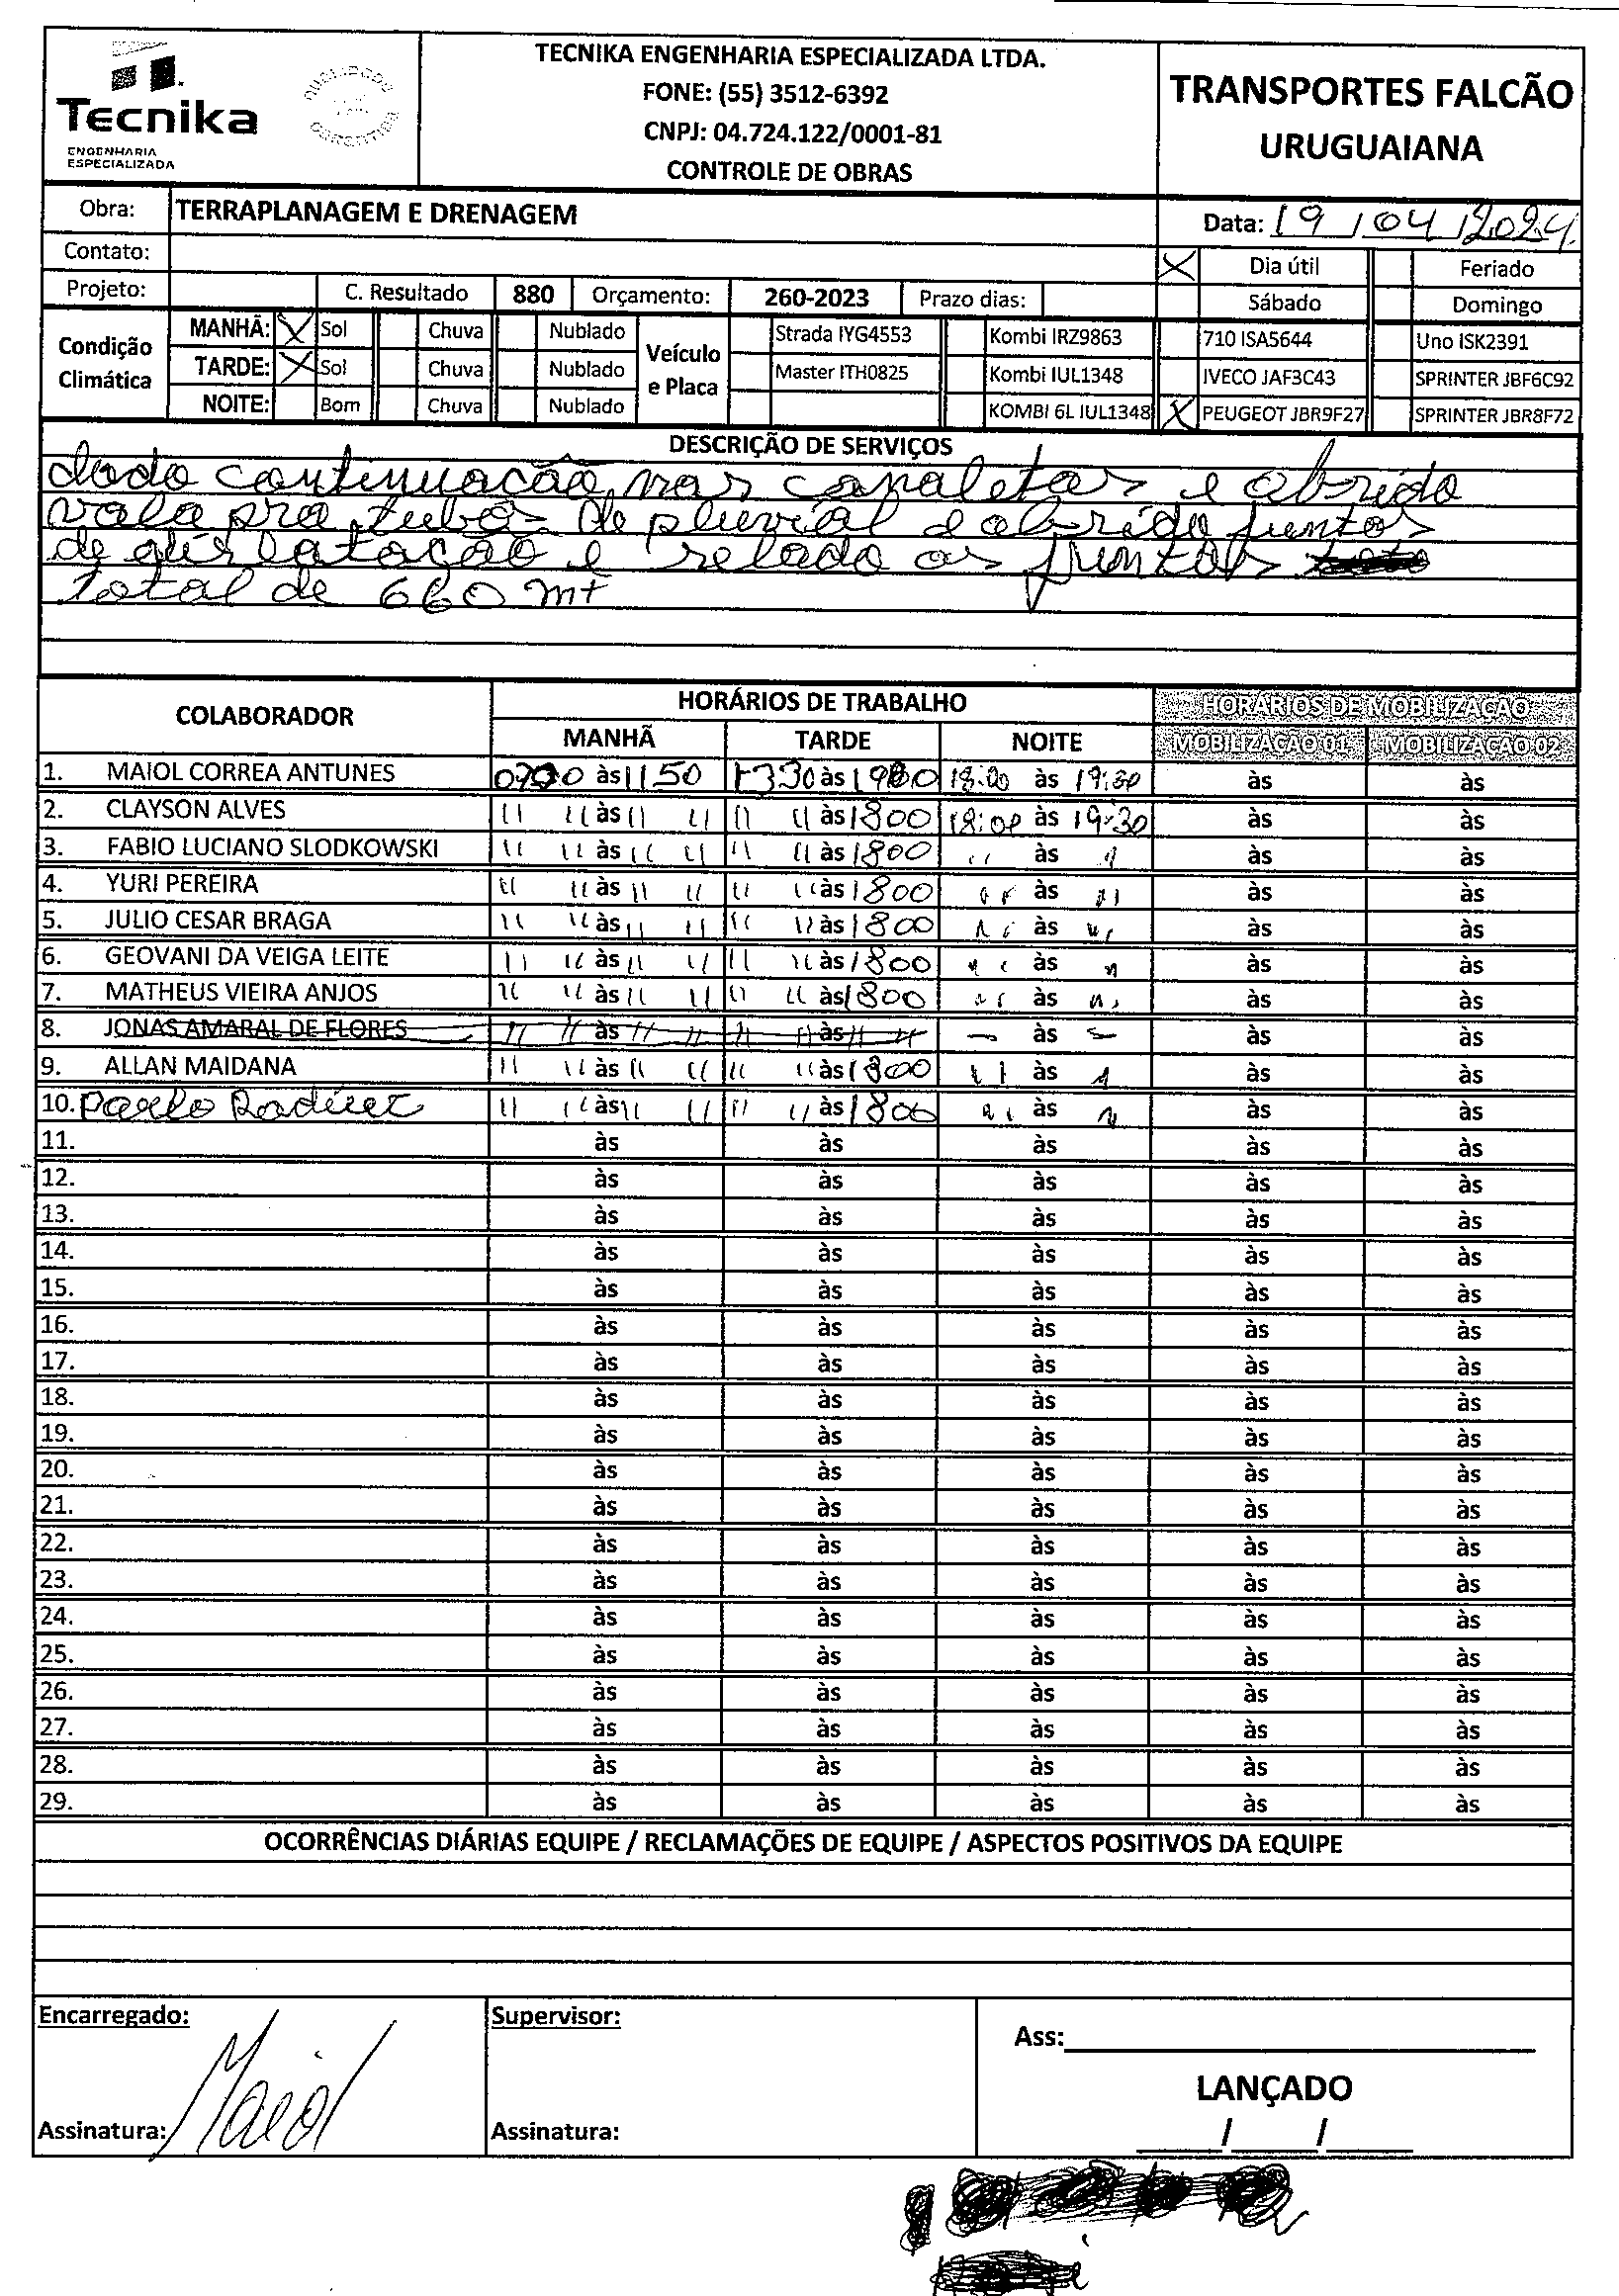 Tecnika
ENGENHARIA
ESPECIALIZADA
TECNIKA ENGENHARIA ESPECIALIZADA LTDA.
FONE: (55) 3512-6392
CNPJ: 04.724.122/0001-81
CONTROLE DE OBRAS
TRANSPORTES FALCÃO
URUGUAIANA
Obra: TERRAPLANAGEM E DRENAGEM
Data: 19/04/2024
Contato:
Dia útil Feriado
Projeto: C. Resultado 880 Orçamento: 260-2023 Prazo dias:
Sábado Domingo
Condição Climática
Veículo e Placa
MANHÃ: X Sol Chuva Nublado Strada IYG4553 Kombi IRZ9863 710 ISA5644 Uno ISK2391
TARDE: X Sol Chuva Nublado Master ITH0825 Kombi IUL1348 IVECO JAF3C43 SPRINTER JBF6C92
NOITE: Bom Chuva Nublado KOMBI 6L IUL1348 X PEUGEOT JBR9F27 SPRINTER JBR8F72
DESCRIÇÃO DE SERVIÇOS
dado continuação nas canaletas e abrido
vala pra tubos de pluvial e abrido juntos
de e selado as juntas
total de 660 mt
COLABORADOR HORÁRIOS DE TRABALHO HORÁRIOS DE MOBILIZAÇÃO
MANHÃ TARDE NOITE MOBILIZAÇÃO 01 MOBILIZAÇÃO 02
1. MAIOL CORREA ANTUNES às 1150 1330 às 18:00 às 19:30 às às
2. CLAYSON ALVES " " às " " " " às 1800 18:00 às 19:30 às às
3. FABIO LUCIANO SLODKOWSKI " " às " " " " às 1800 " às " às às
4. YURI PEREIRA " " às " " " " às 1800 " " às " às às
5. JULIO CESAR BRAGA " " às " " " " às 1800 " " às " às às
6. GEOVANI DA VEIGA LEITE " " às " " " " às 1800 " " às " às às
7. MATHEUS VIEIRA ANJOS " " às " " " " às 1800 " " às " às às
8. JONAS AMARAL DE FLORES " " às " " " " às " " - às - às às
9. ALLAN MAIDANA " " às " " " " às 1800 " " às " às às
10. " " às " " " " às 1800 " " às " às às
11. às às às às às
12. às às às às às
13. às às às às às
14. às às às às às
15. às às às às às
16. às às às às às
17. às às às às às
18. às às às às às
19. às às às às às
20. às às às às às
2121. às às às às às
2222às às às às às
2323. às às às às às
24. às às às às às
25. às às às às às
26 às às às às às
27. às às às às às
28às às às às às
29às às às às às
OCORÊNCIAS DIÁRIAS EQUIPE / RECLAMAÇÕES DE EQUIPE / ASPECTOS POSITIVOS DA EQUIPE
Encarregado: Supervisor:
Ass:
LANÇADO
Assinatura: Maiol Assinatura:
__/__/__